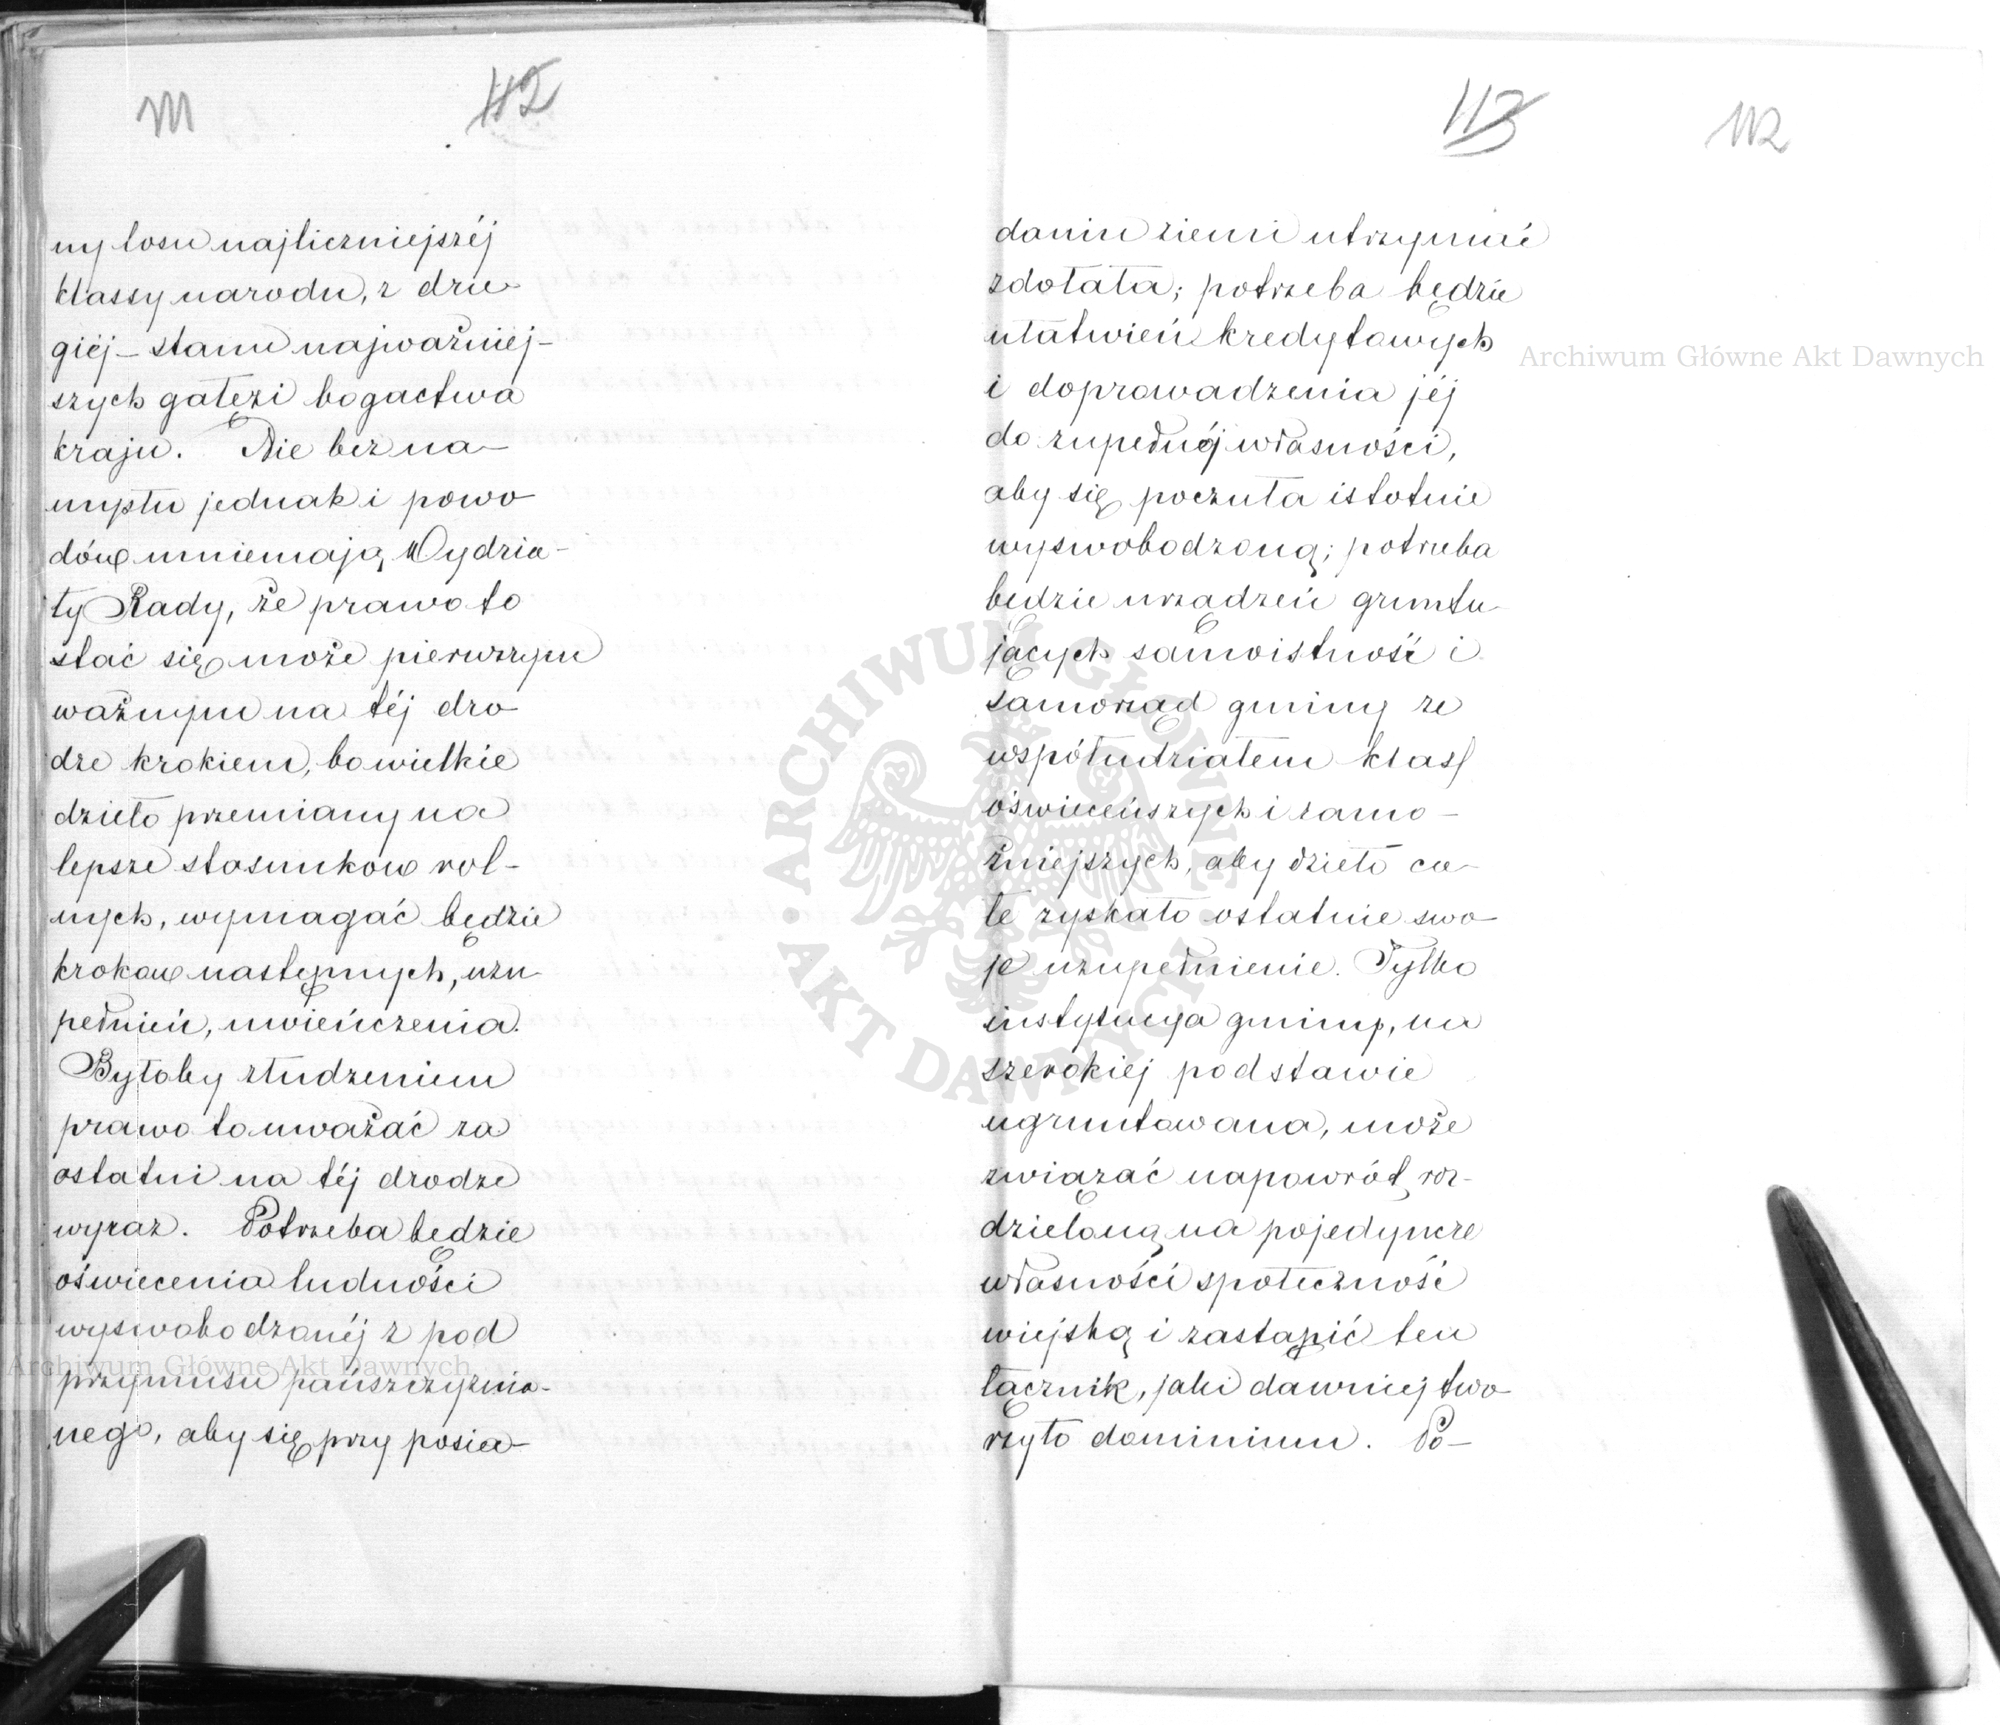 111
112
ny losu najliczniejszéj
klassy narodu, z dru-
giéj – stanu najważniej-
szych gałęzi bogactwa
kraju. Nie bez na-
mysłu jednak i powo
dów mniemają Wydzia-
ły Rady, że prawo to
stać się może pierwszym
ważnym na téj dro
dze krokiem, bo wielkie
dzieło przemiany na
lepsze stosunków rol-
nych, wymagać będzie
kroków następnych, uzu
pełnień, uwieńczenia.
Byłoby złudzeniem
prawo to uważać za
ostatni na téj drodze
wyraz. Potrzeba będzie
oświecenia ludności
wyswobodzonéj z pod
przymusu pańszczyźnia-
nego, aby się przy posia-
113
112
daniu ziemi utrzymać
zdołała; potrzeba będzie
ułatwień kredytowych
i doprowadzenia jéj
do zupełnéj własności,
aby się poczuła istotnie
wyswobodzoną; potrzeba
będzie urządzeń gruntu-
jących samoistność i
samorząd gminy ze
współudziałem klass
oświeceńszych i zamo-
żniejszych, aby dzieło ca-
łe zyskało ostatnie swo-
je uzupełnienie. Tylko
instytucya gminy, na
szerokiej podstawie
ugruntowana, może
związać napowrót roz-
dzieloną na pojedyncze
własności społeczność
wiejską i zastąpić ten
łącznik, jaki dawniej two-
rzyło dominium. Po-
Archiwum Główne Akt Dawnych
Archiwum Główne Akt Dawnych
ARCHIWUM GŁÓWNE • AKT DAWNYCH •